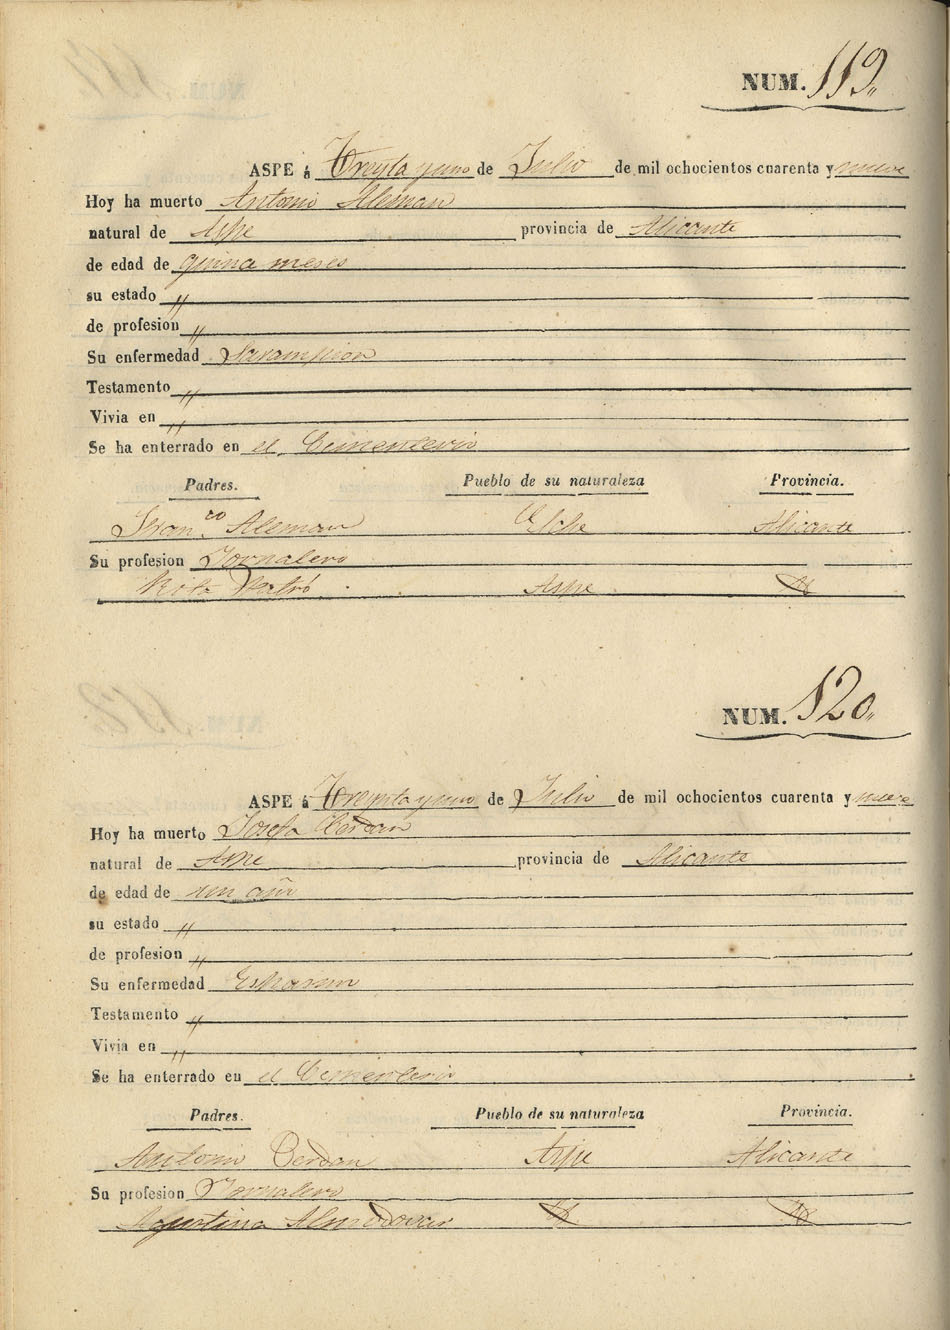 NUM. 119.,
ASPE á Treynta y uno de Julio de mil ochocientos cuarenta y nueve
Hoy ha muerto Antonio Aleman
natural de Aspe provincia de Alicante
de edad de quince meses
su estado "
de profesion "
Su enfermedad Sarampion
Testamento "
Vivia en "
Se ha enterrado en el Cementerio
Padres. Pueblo de su naturaleza Provincia.
Fran.co Aleman Elche Alicante
Su profesion Jornalero
Rita Aspe Id
NUM. 120.,
ASPE á Treynta y uno de Julio de mil ochocientos cuarenta y nueve
Hoy ha muerto Josefa Cerdan
natural de Aspe provincia de Alicante
de edad de un año
su estado "
de profesion "
Su enfermedad
Testamento "
Vivia en "
Se ha enterrado en el Cementerio
Padres. Pueblo de su naturaleza Provincia.
Antonio Cerdan Aspe Alicante
Su profesion Jornalero
Agustina Almodovar Id Id